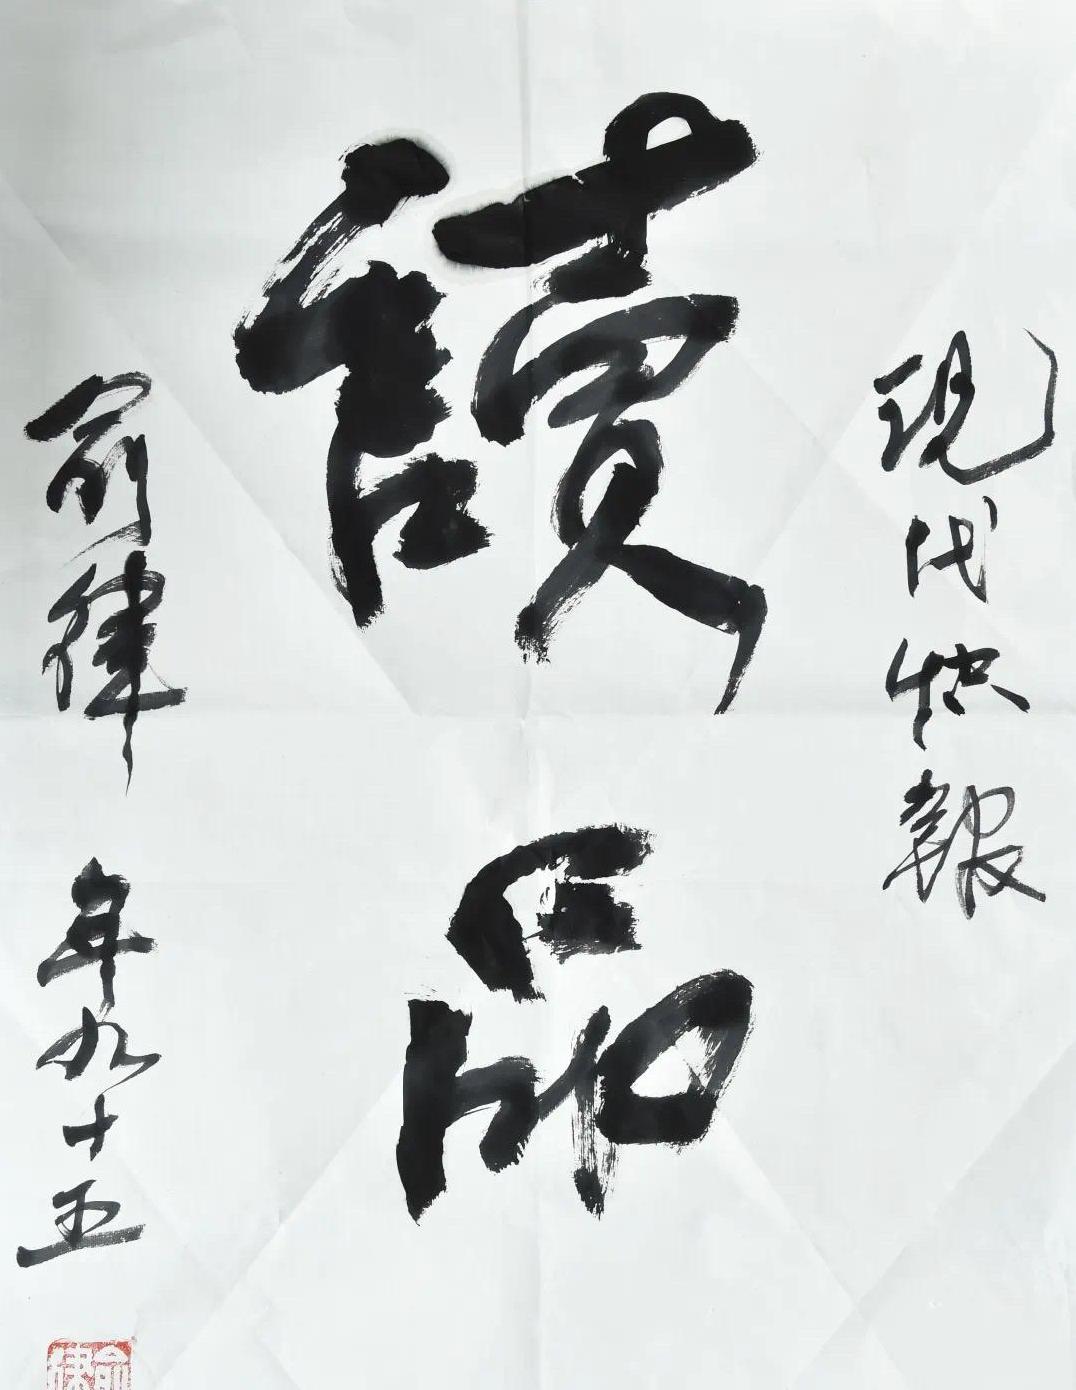 現代快報
讀品
俞律 年九十五
俞律